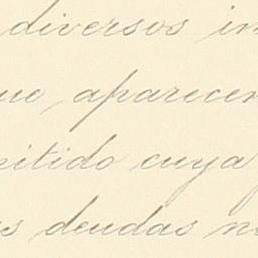 diversos in
ue aparecen
mitido cuya
s deudas no